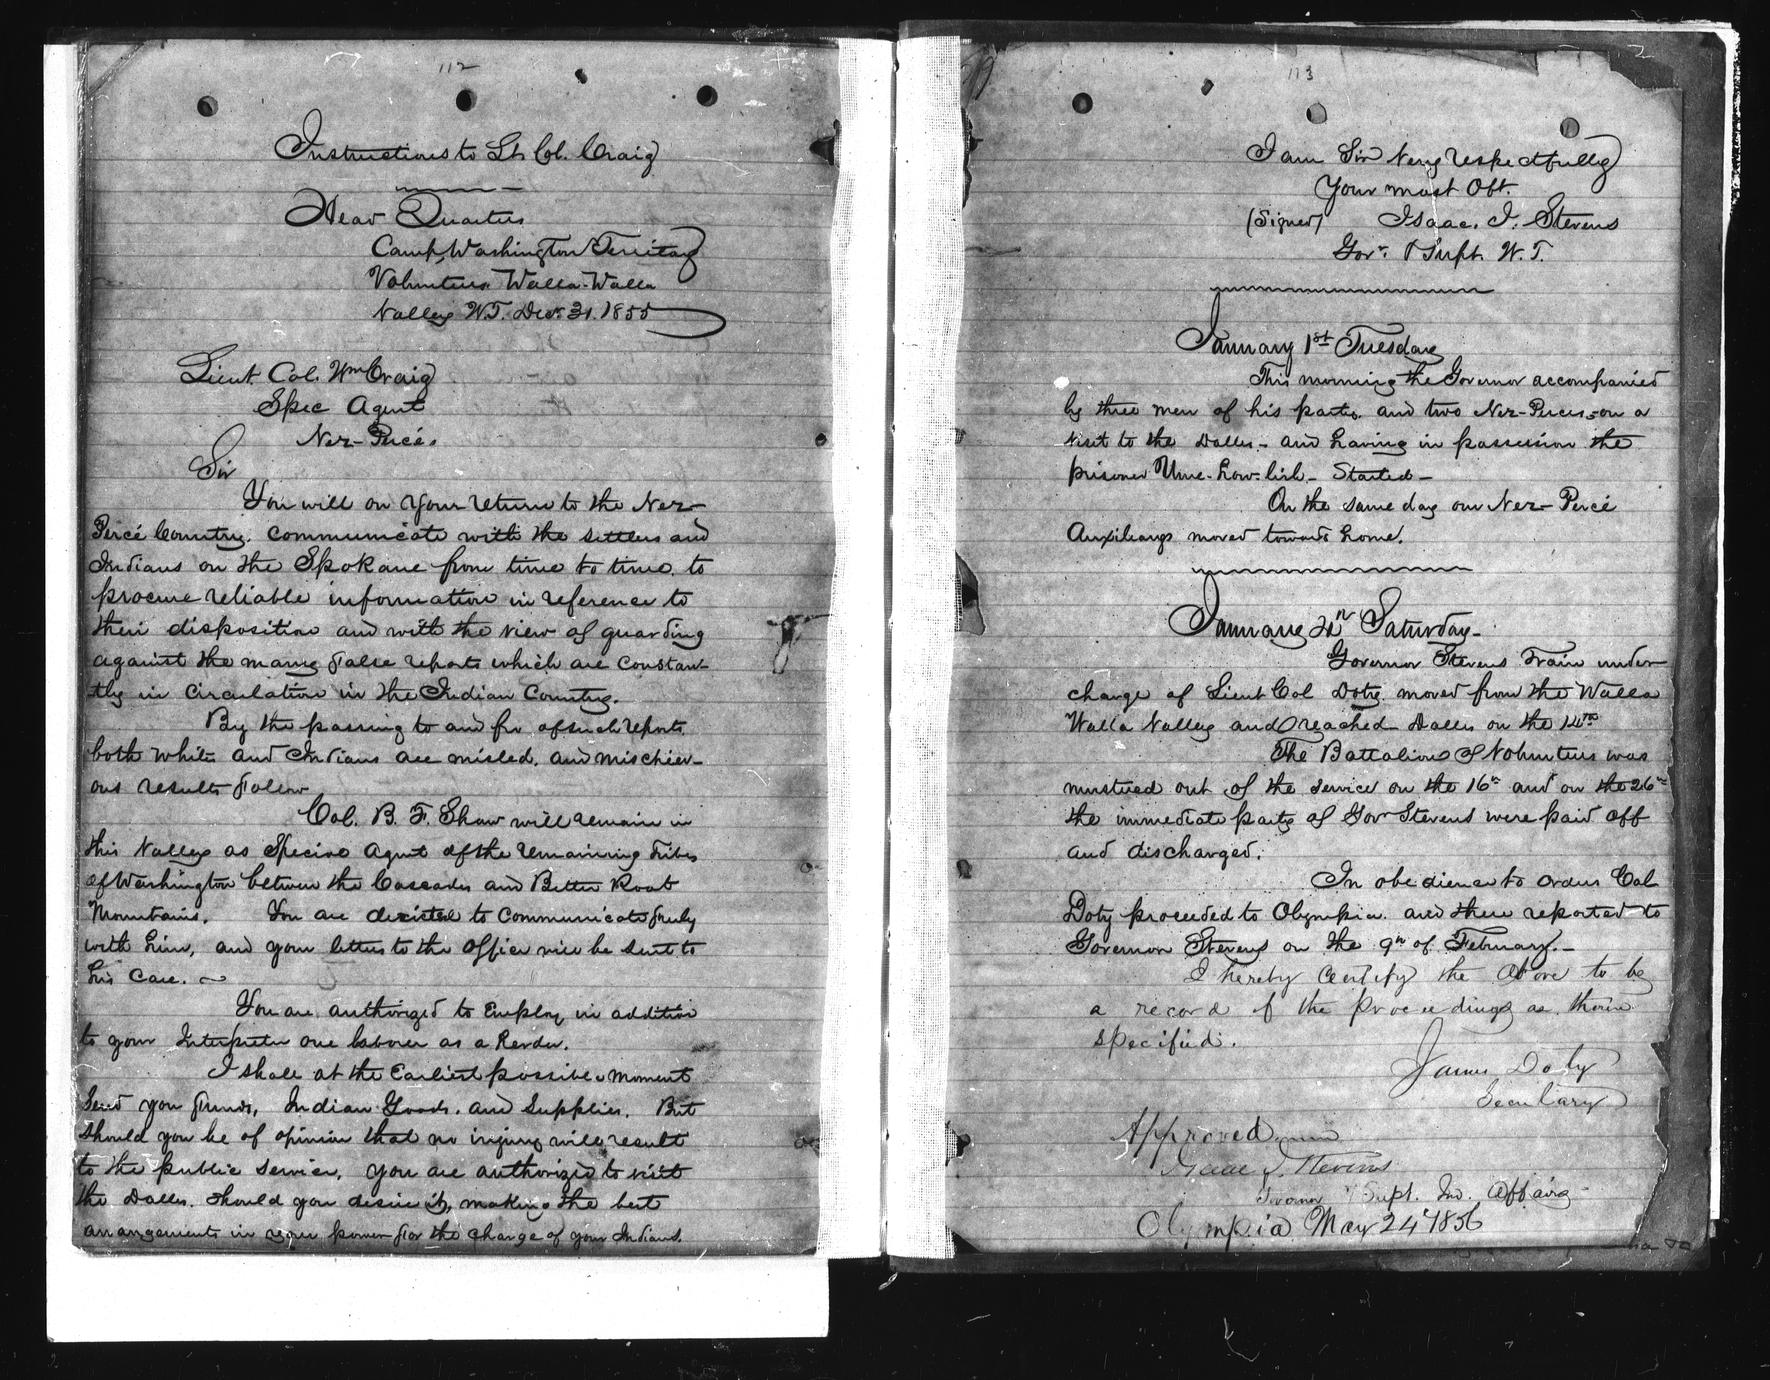 112
Instructions to Lt. Col. Craig
Head Quarters
Camp, Washington Territory
Volunteers Walla-Walla
Valley W.T. Decr. 31. 1855
Lieut. Col. Wm Craig
Spec Agent
Nez-Percé.
Sir
You will on your return to the Nez-
Percé Country. communicate with the settlers and
Indians on the Spokane from time to time. to
procure reliable information in reference to
their disposition and with the view of guarding
against the many false reports which are constant-
tly in circulation in the Indian Country.
By the passing to and fro of such reports.
both white and Indians are misled. and mischiev-
ous results follow
Col. B. F. Shaw will remain in
this Valley as Special Agent of the remaining Tribes
of Washington between the Cascades and Bitter Root
Mountains. You are directed to communicate freely
with him, and your letters to the Office will be sent to
his care.
You are authorized to Employ in addition
to your Interpreter one laborer as a Herder.
I shall at the Earliest possible moment
send you funds, Indian Goods. and Supplies. But
should you be of opinion that no injury will result
to the public service, you are authorized to visit
the Dalles. should you desire it, making the best
arrangements in your power for the charge of your Indians.
113
I am Sir Very respectfully
Your most Obt.
(Signed) Isaac. I. Stevens
Govr. & Supt. W.T.
January 1st Tuesday
This morning the Governor accompanied
by three men of his party. and two Nez-Perces-on a
visit to the Dalles- and having in possession the
prisoner Ume-how-lish- Started-
On the same day our Nez-Percé
Auxiliarys moved towards home.
January 4th Saturday-
Governor Stevens Train under
charge of Lieut Col Doty. moved from the Walla
Walla Valley and reached Dalles on the 14th
The Battalion of Volunteers was
mustered out of the service on the 16th and on the 26th
the immediate party of Gov Stevens were paid off
and discharged.
In obedience to orders Col
Doty proceeded to Olympia. and there reported to
Governor Stevens on the 9th of February.-
I hereby Certify the above to be
a record of the Proceedings as therein
specified.
James Doty
Secretary
Approved
Isaac I. Stevens
Governor & Supt. Ind. Affairs
Olympia May 24 1856